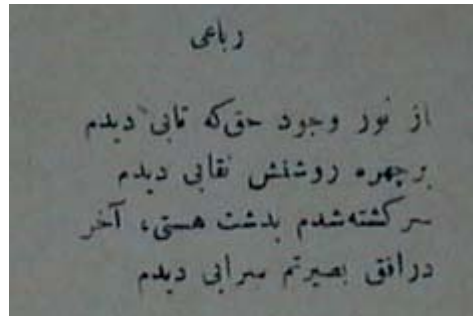 رباعی
از نور وجود حق‌که تابی دیدم
برچهره روشنش نقابی دیدم
سرگشته‌شدم بدشت هستی، آخر
درافق بصیرتم سرابی دیدم